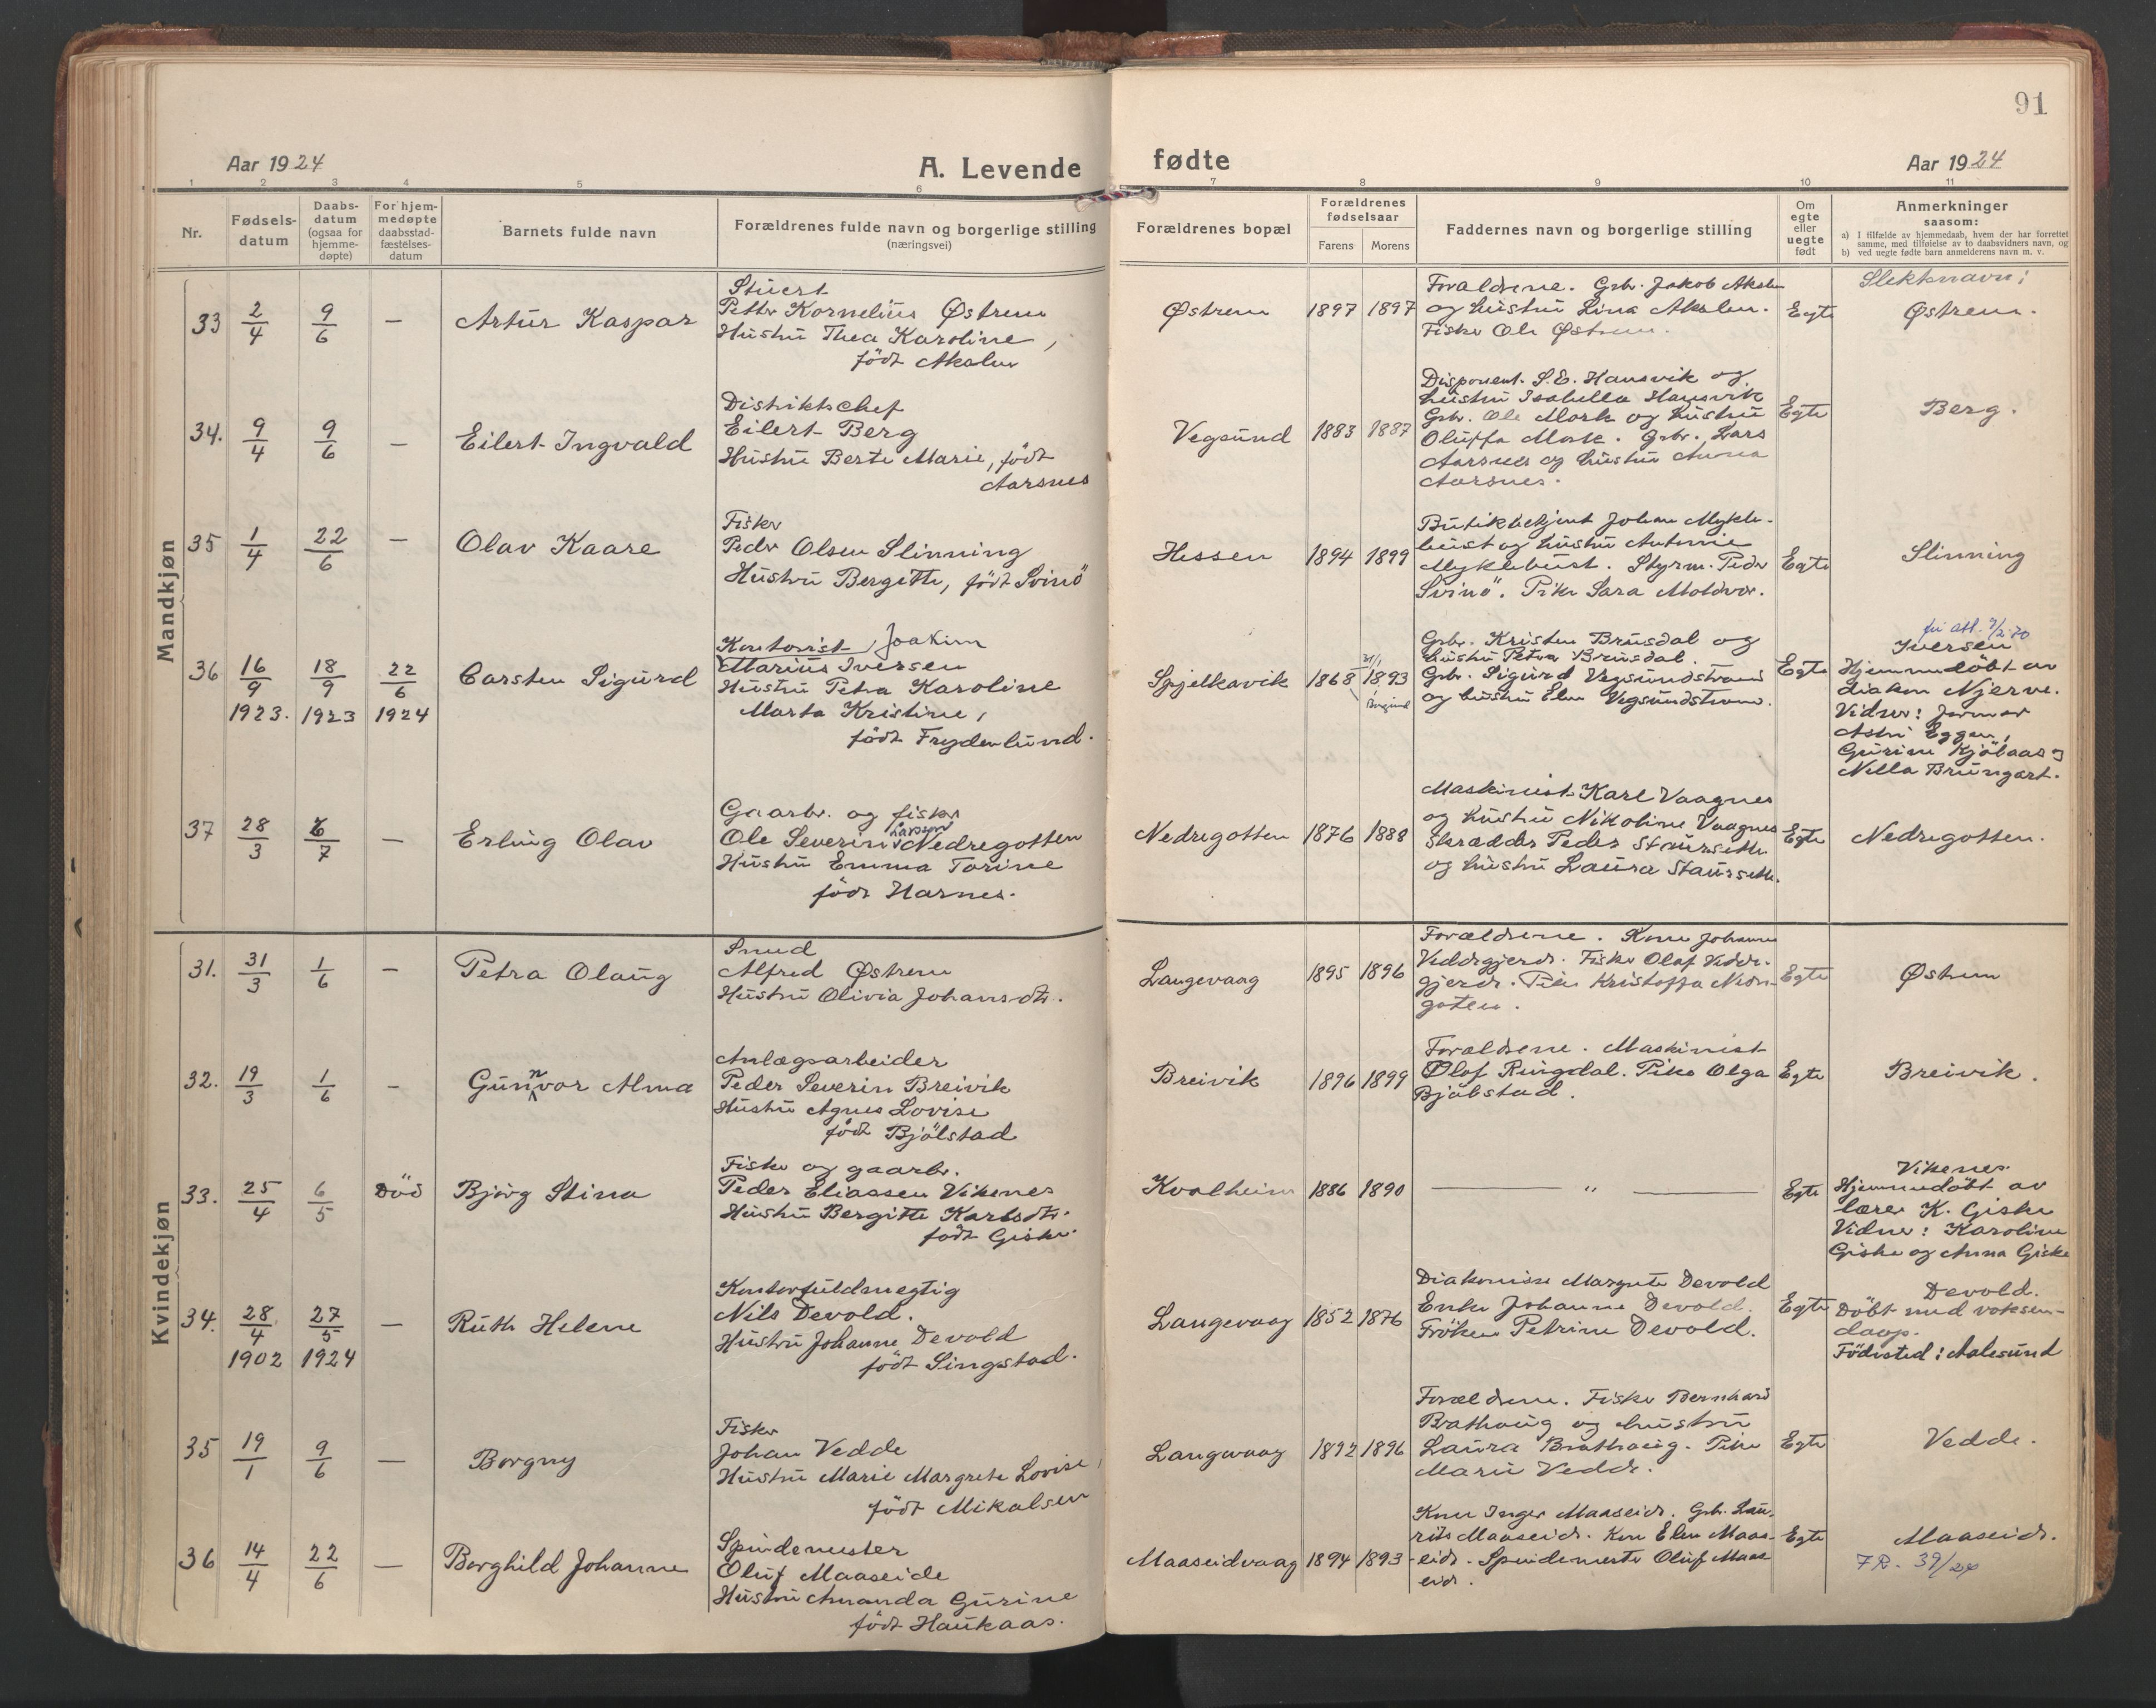 91
Aar 1924
A. Levende fødte
Aar 1924
1 2 3 4 5 6 7 8 9 10 11
Nr.
Fødsels-
datum
Daabs-
datum
(ogsaa for
hjemme-
døpte)
For hjem-
medøpte
daabsstad-
fæstelses-
datum
Barnets fulde navn
Forældrenes fulde navn og borgerlige stilling
(næringsvei)
Forældrenes bopæl
Forældrenes
fødselsaar
Farens Morens
Faddernes navn og borgerlige stilling
Om
egte
eller
uegte
født
Anmerkninger
saasom:
a) I tilfælde av hjemmedaab, hvem der har forrettet
samme, med tilføielse av to daabsvidners navn, og
b) ved uegte fødte barn anmelderens navn m. v.
Mandkjøn
33 2/4 9/6 — Artur Kaspar
Stuert
Petter Kornelius Østrem
Hustru Thea Karoline,
født Akslen
Østrem 1897 1897
Forældrene. Grbr. Jakob Akslen
og hustru Lina Akslen.
Fisker Ole Østrem.
Egte
Slektnavn:
Østrem.
34. 9/4 9/6 — Eilert Ingvald
Distriktschef
Eilert Berg
Hustru Berte Marie, født
Aarsnes
Vegsund 1883 1887
Disponent S.E. Hansvik og
hustru Isabella Hansvik
Grbr. Ole Mork og hustru
Oluffa Mork. Grbr. Lars
Aarsnes og hustru Anna
Aarsnes.
Egte
Berg.
35 1/4 22/6 — Olav Kaare
Fisker
Peder Olsen Slinning
Hustru Bergitte, født Svinö
Hessen 1894 1899
Butikbetjent Johan Mykle-
bust og hustru Antonie
Myklebust. Styrm. Peder
Svinö. Pike Sara Moldvær.
Egte
Slinning
36 16/9 1923. 18/9 1923 22/6 1924 Carsten Sigurd
Kontorist Joakim
Marius Iversen
Hustru Petra Karoline
Marta Kristine,
født Frydenlund.
Spjelkavik 1868 1893
Grbr. Kristen Brusdal og
hustru Petra Brusdal.
Grbr. Sigurd Vegsundstrand
og hustru Elen Vegsundstrand.
Egte
Iversen
Hjemmedöbt av
diakon Njerve.
Vidner: Jormor
Astri Eggen,
Gurine Kjöbaas og
Nella Brungart.
37 28/3 6/7 — Erling Olav
Gaarbr. og fisker
Ole Severin Larsen Nedregotten
Hustru Emma Torine
født Harnes.
Nedregotten 1876 1888
Maskinist Karl Vaagnes
og hustru Nikoline Vaagnes
Skrædder Peder Staursette
og hustru Laura Staursette.
Egte
Nedregotten.
Kvindekjøn
31. 31/3 1/6 — Petra Olaug
Smed
Alfred Østrem
Hustru Olivia Johansdtr.
Langevaag 1895 1896
Forældrene. Kone Johanne
Veddegjerde. Fisker Olaf Vedde-
gjerde. Pike Kristoffa Nedre-
goten.
Egte
Østrem
32. 19/3 1/6 — Gunnvor Alma
Anlægsarbeider
Peder Severin Breivik
Hustru Agnes Lovise
født Bjölstad
Breivik 1896 1899
Forældrene. Maskinist
Olaf Ringdal. Pike Olga
Bjölstad.
Egte
Breivik.
33. 25/4 6/5 Död Bjørg Stina
Fisker og gaarbr.
Peder Eliassen Vikenes
Hustru Bergitte Karlsdtr.
født Giske
Kvalheim 1886 1890
— " —
Egte
Vikenes.
Hjemmedöbt av
lærer K. Giske
Vidner: Karoline
Giske og Anna Giske
34. 28/4 1902 27/5 1924 — Ruth Helene
Kontorfuldmegtig
Nils Devold.
Hustru Johanne Devold
født Singstad.
Langevaag 1852 1876
Diakonisse Margrete Devold
Enke Johanne Devold.
Fröken Petrine Devold.
Egte
Devold.
Döbt med voksen-
daap.
Födested: Aalesund
35 19/1 9/6 — Borgny
Fisker
Johan Vedde
Hustru Marie Margrete Lovise,
født Mikalsen
Langevaag 1892 1896
Forældrene. Fisker Bernhard
Brathaug og hustru
Laura Brathaug. Pike
Marie Vedde.
Egte
Vedde.
36 14/4 22/6 — Borghild Johanne
Spindemester
Oluf Maaseide
Hustru Amanda Gurine
født Haukaas.
Maaseidvaag 1894 1893
Kone Inger Maaseide. Grbr. Lau-
rits Maaseide. Kone Elen Maas-
eide. Spindemester Oluf Maas-
eide.
Egte
Maaseide.
F.R. 39/24